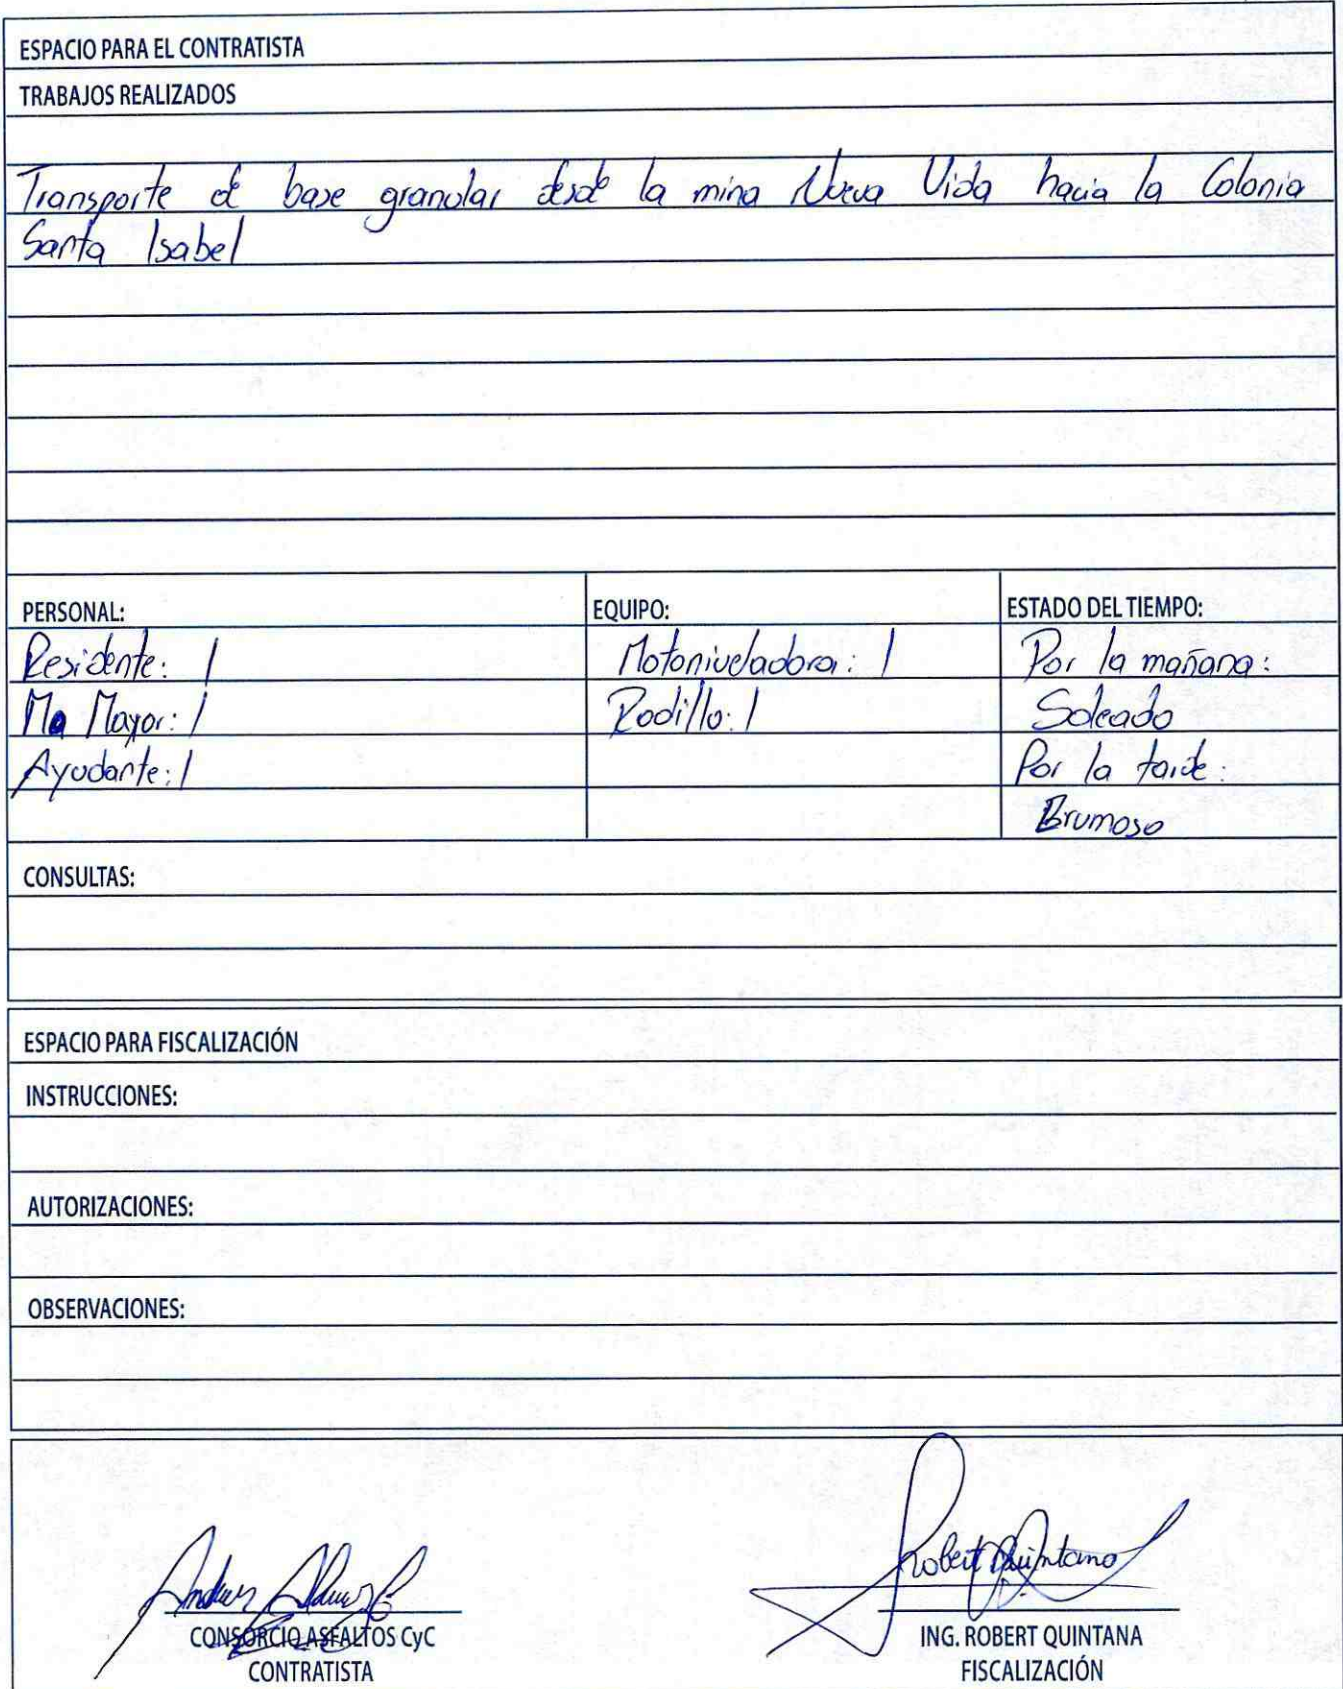 ESPACIO PARA EL CONTRATISTA
TRABAJOS REALIZADOS
Transporte de base granular desde la mina Nueva Vida hacia la Colonia
Santa Isabel
PERSONAL:
Residente: 1
Ma Mayor: 1
Ayudante: 1
EQUIPO:
Motoniveladora: 1
Rodillo: 1
ESTADO DEL TIEMPO:
Por la mañana:
Soleado
Por la tarde:
Brumoso
CONSULTAS:
ESPACIO PARA FISCALIZACIÓN
INSTRUCCIONES:
AUTORIZACIONES:
OBSERVACIONES:
CONSORCIO ASFALTOS CyC
CONTRATISTA
Robert Quintana
ING. ROBERT QUINTANA
FISCALIZACIÓN